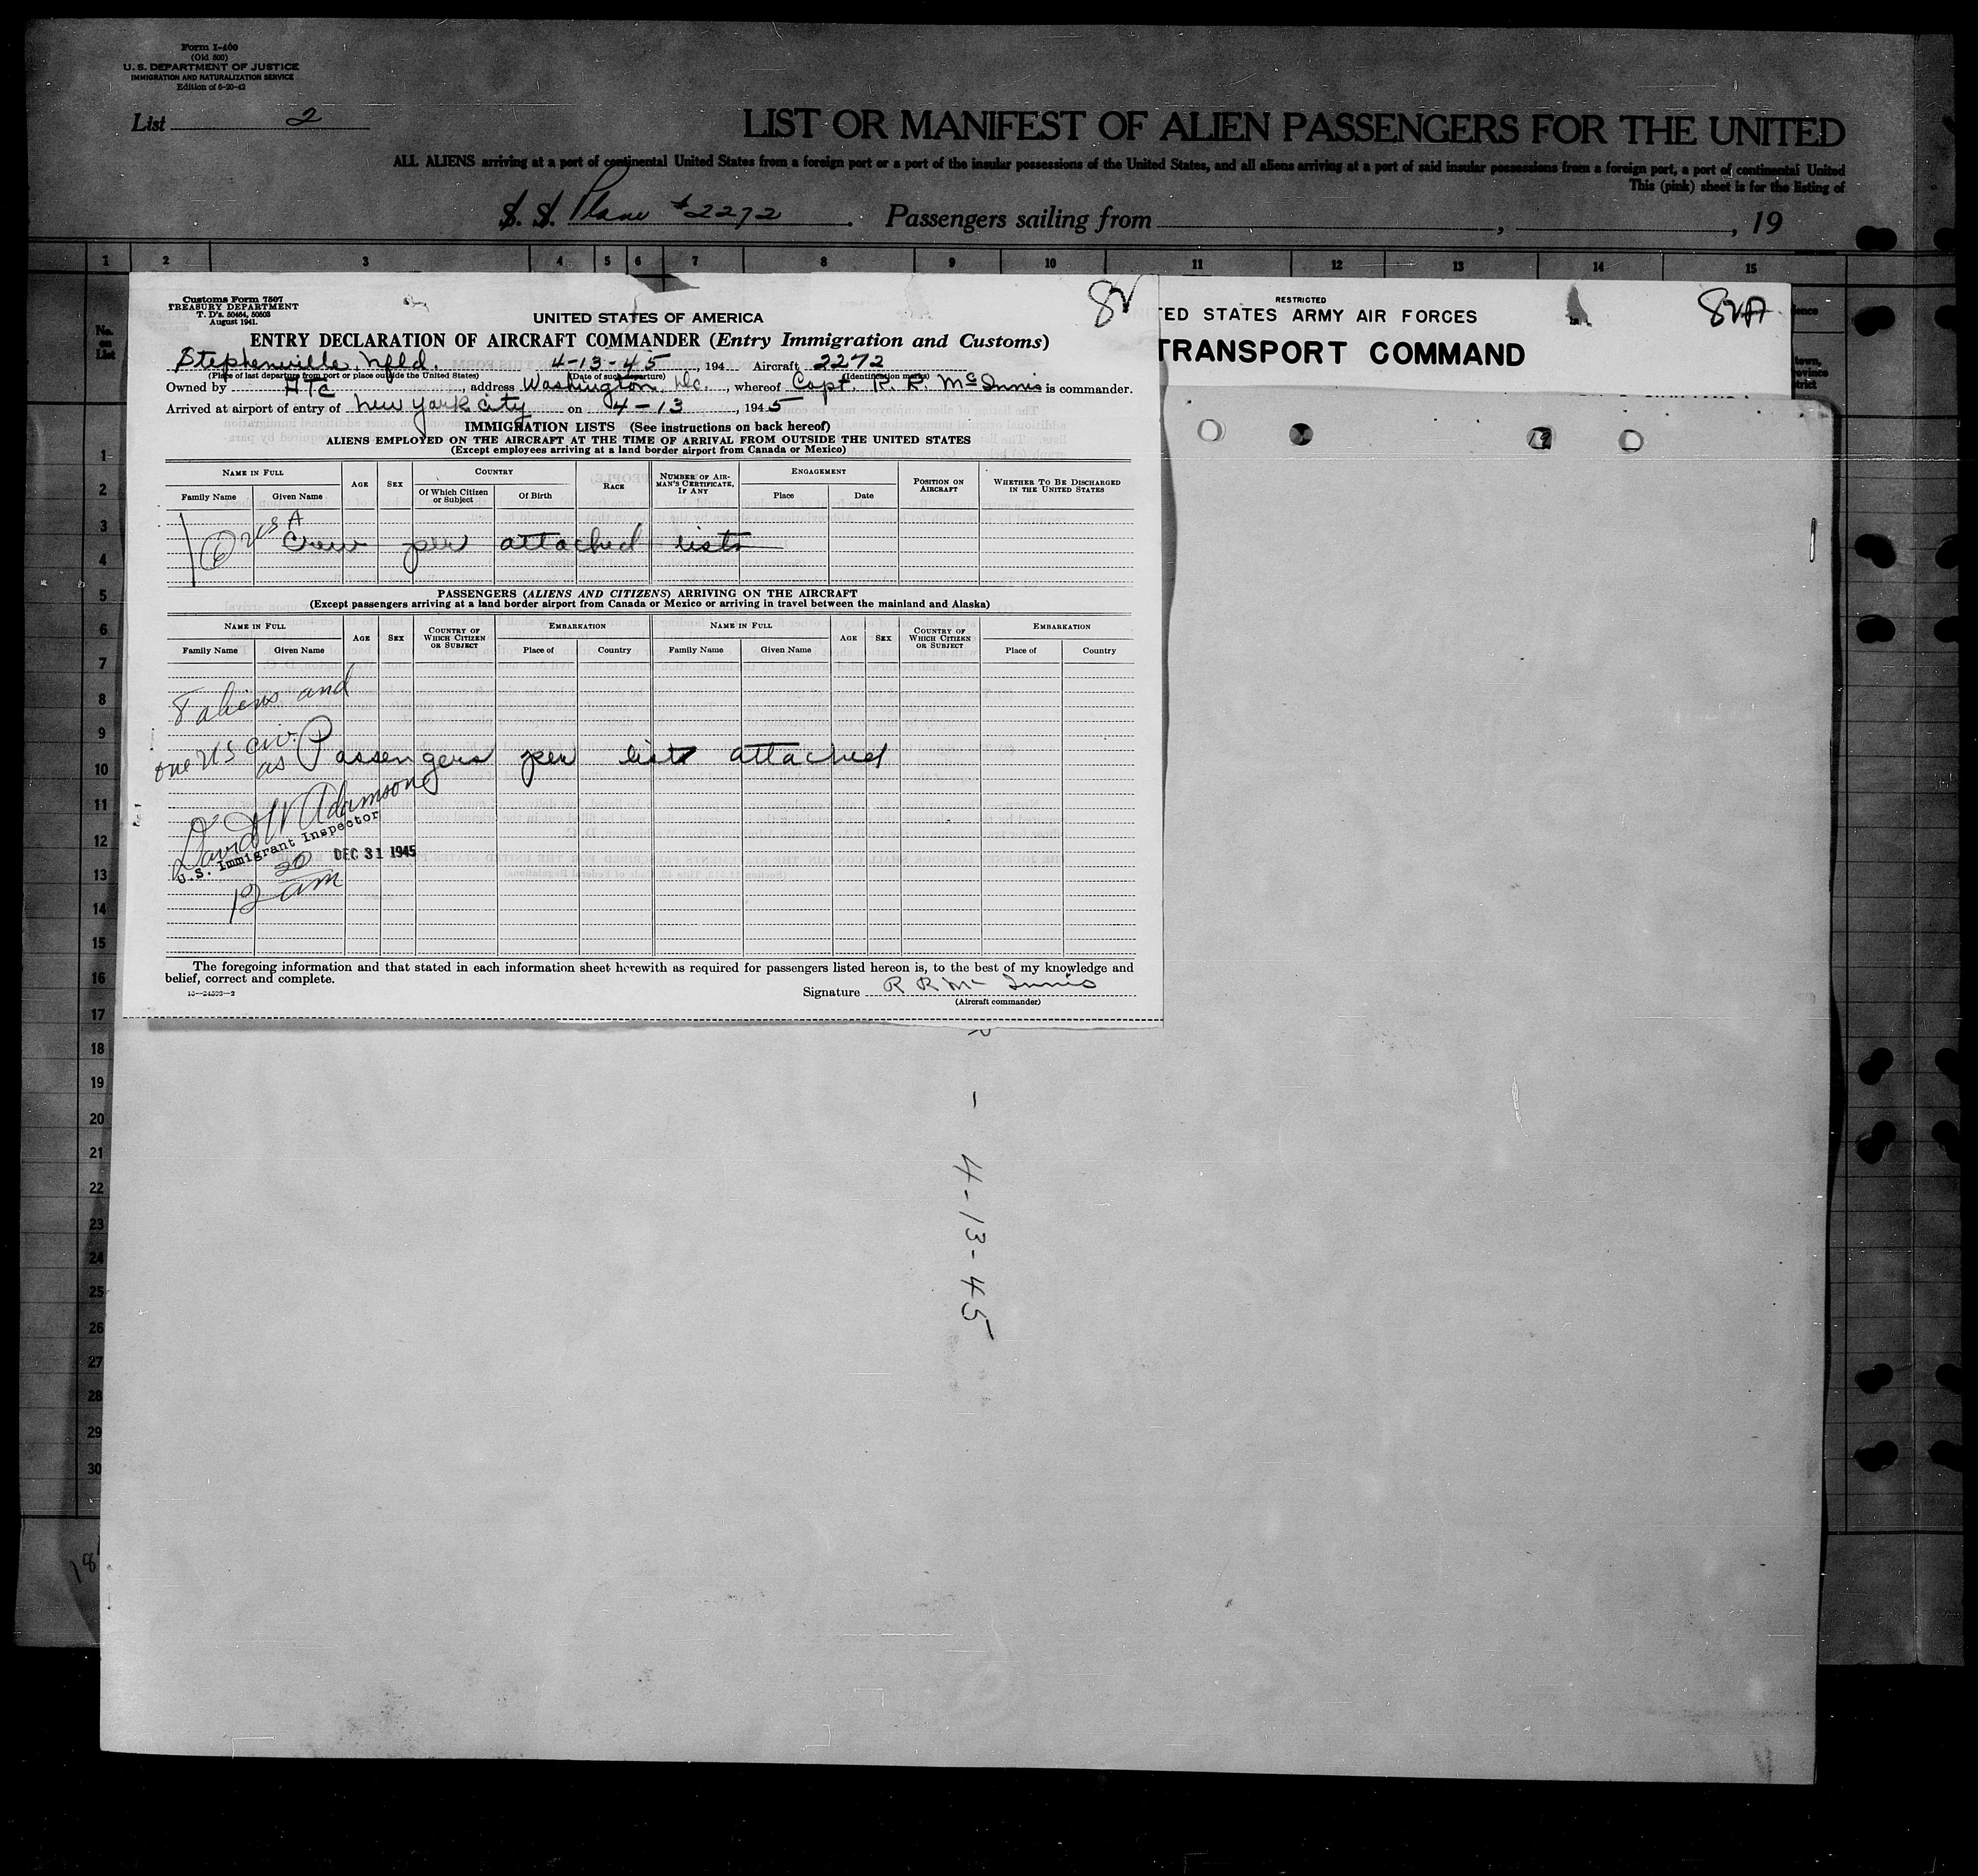 Form I-400
(Old 500)
U. S. DEPARTMENT OF JUSTICE
IMMIGRATION AND NATURALIZATION SERVICE
Edition of 6-20-42
List 2
LIST OR MANIFEST OF ALIEN PASSENGERS FOR THE UNITED
ALL ALIENS arriving at a port of continental United States from a foreign port or a port of the insular possessions of the United States, and all aliens arriving at a port of said insular possessions from a foreign port, a port of continental United
This (pink) sheet is for the listing of
S. S. Plane #2272. Passengers sailing from , , 19
1 2 3 4 5 6 7 8 9 10 11 12 13 14 15
No. on List
Customs Form 7507
TREASURY DEPARTMENT
T. D's. 50464, 50503
August 1941.
82
UNITED STATES OF AMERICA
ENTRY DECLARATION OF AIRCRAFT COMMANDER (Entry Immigration and Customs)
Stephenville, Nfld. 4-13-45, 194 Aircraft 2272
(Place of last departure from port or place outside the United States) (Date of such departure) (Identification marks)
Owned by ATC, address Washington, D.C., whereof Capt. R. R. McInnis is commander.
Arrived at airport of entry of New York City on 4-13, 1945
IMMIGRATION LISTS (See instructions on back hereof)
ALIENS EMPLOYED ON THE AIRCRAFT AT THE TIME OF ARRIVAL FROM OUTSIDE THE UNITED STATES
(Except employees arriving at a land border airport from Canada or Mexico)
NAME IN FULL AGE SEX COUNTRY RACE NUMBER OF AIRMAN'S CERTIFICATE, IF ANY ENGAGEMENT POSITION ON AIRCRAFT WHETHER TO BE DISCHARGED IN THE UNITED STATES
Family Name Given Name Of Which Citizen or Subject Of Birth Place Date
6 USA
Crew per attached lists
PASSENGERS (ALIENS AND CITIZENS) ARRIVING ON THE AIRCRAFT
(Except passengers arriving at a land border airport from Canada or Mexico or arriving in travel between the mainland and Alaska)
NAME IN FULL AGE SEX COUNTRY OF WHICH CITIZEN OR SUBJECT EMBARKATION NAME IN FULL AGE SEX COUNTRY OF WHICH CITIZEN OR SUBJECT EMBARKATION
Family Name Given Name Place of Country Family Name Given Name Place of Country
aliens and
one US civ.
as Passengers per list attached
David W Adamson
U.S. Immigrant Inspector
DEC 31 1945
12 30 am
The foregoing information and that stated in each information sheet herewith as required for passengers listed hereon is, to the best of my knowledge and
belief, correct and complete.
16-24593-2
Signature R R McInnis
(Aircraft commander)
RESTRICTED
TED STATES ARMY AIR FORCES
TRANSPORT COMMAND
82A
19
4-13-45
1
2
3
4
5
6
7
8
9
10
11
12
13
14
15
16
17
18
19
20
21
22
23
24
25
26
27
28
29
30